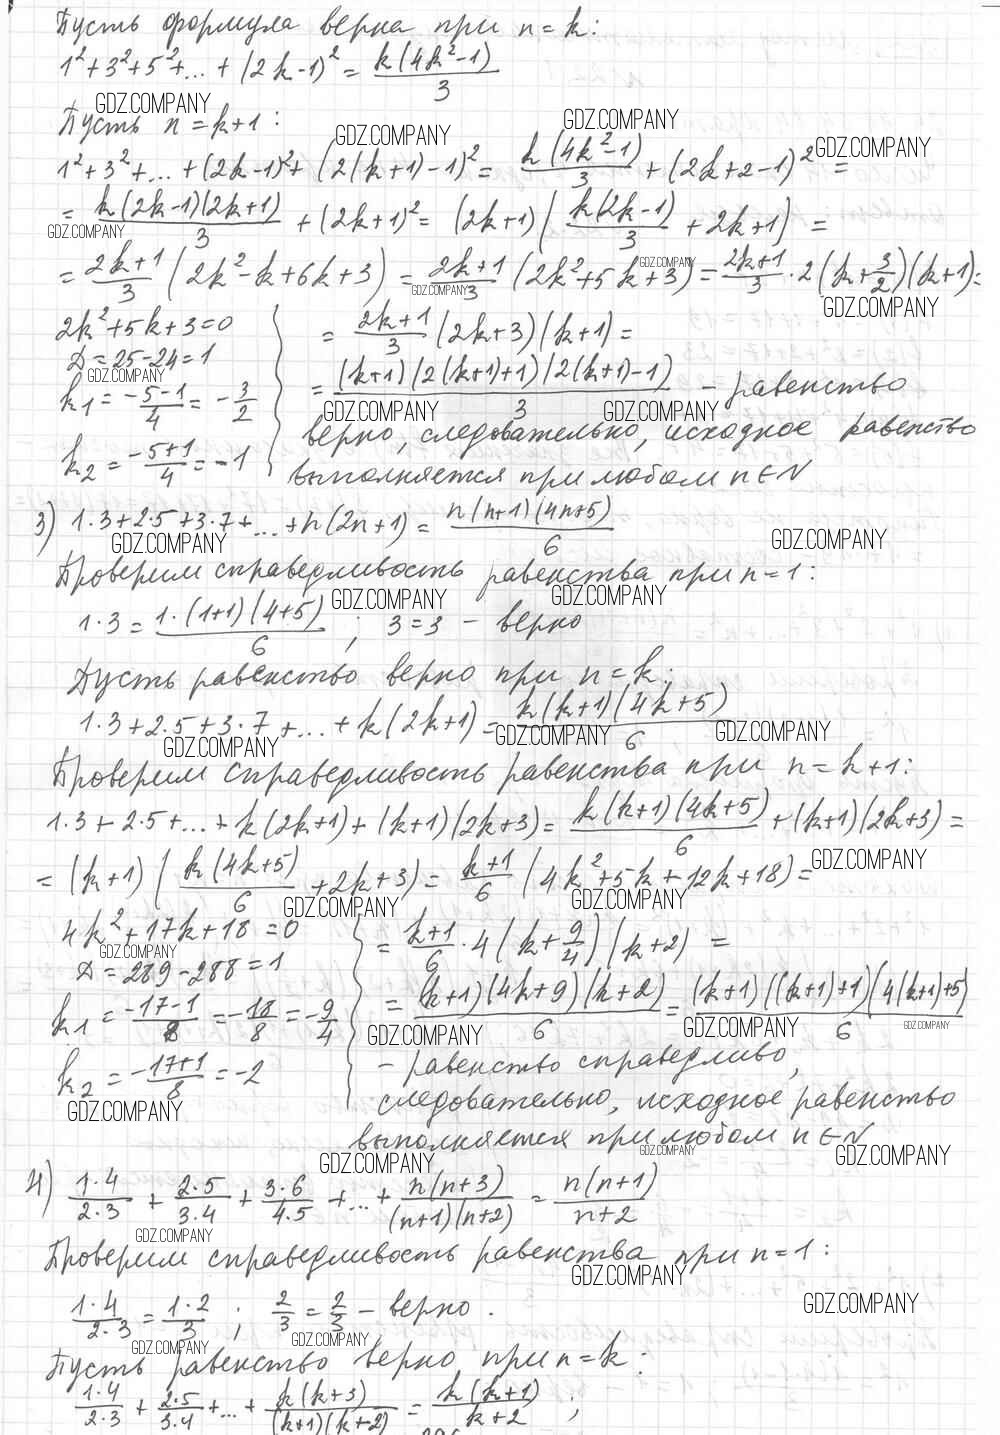 Пусть формула верна при n = k:
1² + 3² + 5² + ... + (2k-1)² = k(4k²-1)/3
GDZ.COMPANY
Пусть n = k+1 :
GDZ.COMPANY GDZ.COMPANY GDZ.COMPANY
1² + 3² + ... + (2k-1)² + (2(k+1)-1)² = k(4k²-1)/3 + (2k+2-1)² =
= k(2k-1)(2k+1)/3 + (2k+1)² = (2k+1)(k(2k-1)/3 + 2k+1) =
GDZ.COMPANY
= 2k+1/3 (2k²-k+6k+3) = 2k+1/3 (2k²+5k+3) = 2k+1/3 · 2(k+3/2)(k+1) =
GDZ.COMPANY GDZ.COMPANY GDZ.COMPANY
2k²+5k+3=0
Д = 25-24 = 1
GDZ.COMPANY
k1 = -5-1/4 = -3/2
k2 = -5+1/4 = -1
= 2k+1/3 (2k+3)(k+1) =
= (k+1)(2(k+1)+1)(2(k+1)-1)/3 – равенство
GDZ.COMPANY GDZ.COMPANY
верно, следовательно, исходное равенство
выполняется при любом n∈N
3) 1·3+2·5+3·7+...+n(2n+1) = n(n+1)(4n+5)/6
GDZ.COMPANY GDZ.COMPANY
Проверим справедливость равенства при n=1:
GDZ.COMPANY GDZ.COMPANY
1·3 = 1·(1+1)(4+5)/6 ; 3=3 – верно
Пусть равенство верно при n=k:
1·3+2·5+3·7+...+k(2k+1) = k(k+1)(4k+5)/6
GDZ.COMPANY GDZ.COMPANY GDZ.COMPANY
Проверим справедливость равенства при n=k+1:
1·3+2·5+...+k(2k+1)+(k+1)(2k+3) = k(k+1)(4k+5)/6 + (k+1)(2k+3) =
= (k+1)(k(4k+5)/6 + 2k+3) = k+1/6 (4k²+5k+12k+18) =
GDZ.COMPANY GDZ.COMPANY GDZ.COMPANY
4k²+17k+18=0
GDZ.COMPANY
Д = 289-288 = 1
k1 = -17-1/8 = -18/8 = -9/4
k2 = -17+1/8 = -2
GDZ.COMPANY
= k+1/6 · 4(k+9/4)(k+2) =
= (k+1)(4k+9)(k+2)/6 = (k+1)((k+1)+1)(4(k+1)+5)/6
GDZ.COMPANY GDZ.COMPANY GDZ.COMPANY
– равенство справедливо,
следовательно, исходное равенство
выполняется при любом n∈N
GDZ.COMPANY GDZ.COMPANY GDZ.COMPANY
4) 1·4/2·3 + 2·5/3·4 + 3·6/4·5 + ... + n(n+3)/(n+1)(n+2) = n(n+1)/n+2
GDZ.COMPANY
Проверим справедливость равенства при n=1:
GDZ.COMPANY GDZ.COMPANY
1·4/2·3 = 1·2/3 ; 2/3 = 2/3 – верно.
GDZ.COMPANY GDZ.COMPANY
Пусть равенство верно при n=k:
1·4/2·3 + 2·5/3·4 + ... + k(k+3)/(k+1)(k+2) = k(k+1)/k+2 ;